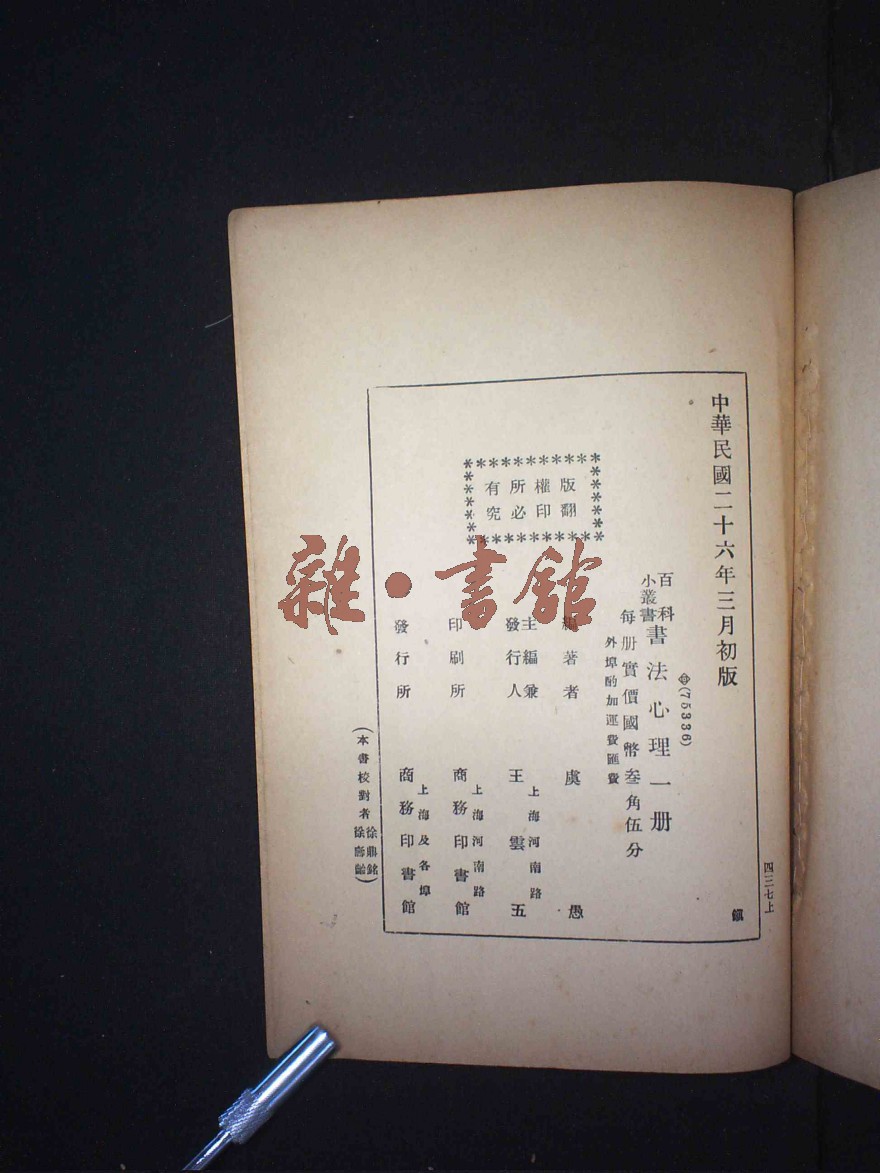 中華民國二十六年三月初版
四三七上
(75336)
百科
小叢書
書法心理一册
每册實價國幣叁角伍分
外埠酌加運費匯費
版權所有
翻印必究
編著者 虞愚
主編兼
發行人
王雲五
上海河南路
印刷所
商務印書館
上海河南路
發行所
商務印書館
上海及各埠
(本書校對者徐鼎銘
徐)
雜·書館